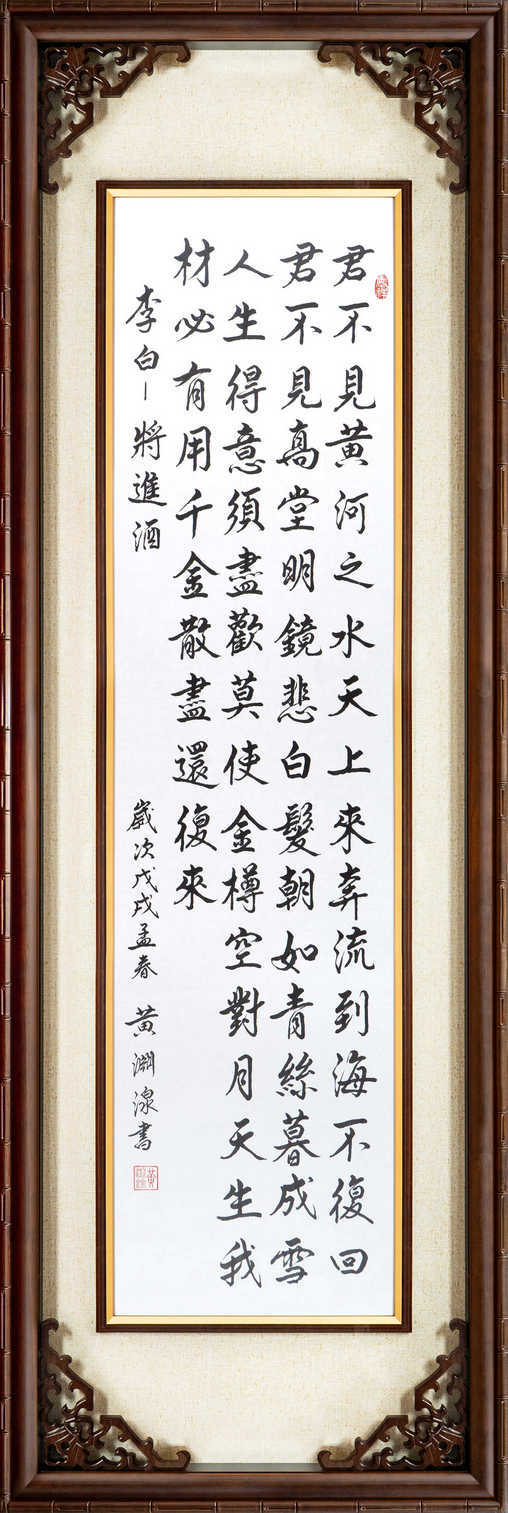 君不見黃河之水天上來奔流到海不復回
君不見高堂明鏡悲白髮朝如青絲暮成雪
人生得意須盡歡莫使金樽空對月天生我
材必有用千金散盡還復來
李白－將進酒
歲次戊戌孟春 黃淵湶書